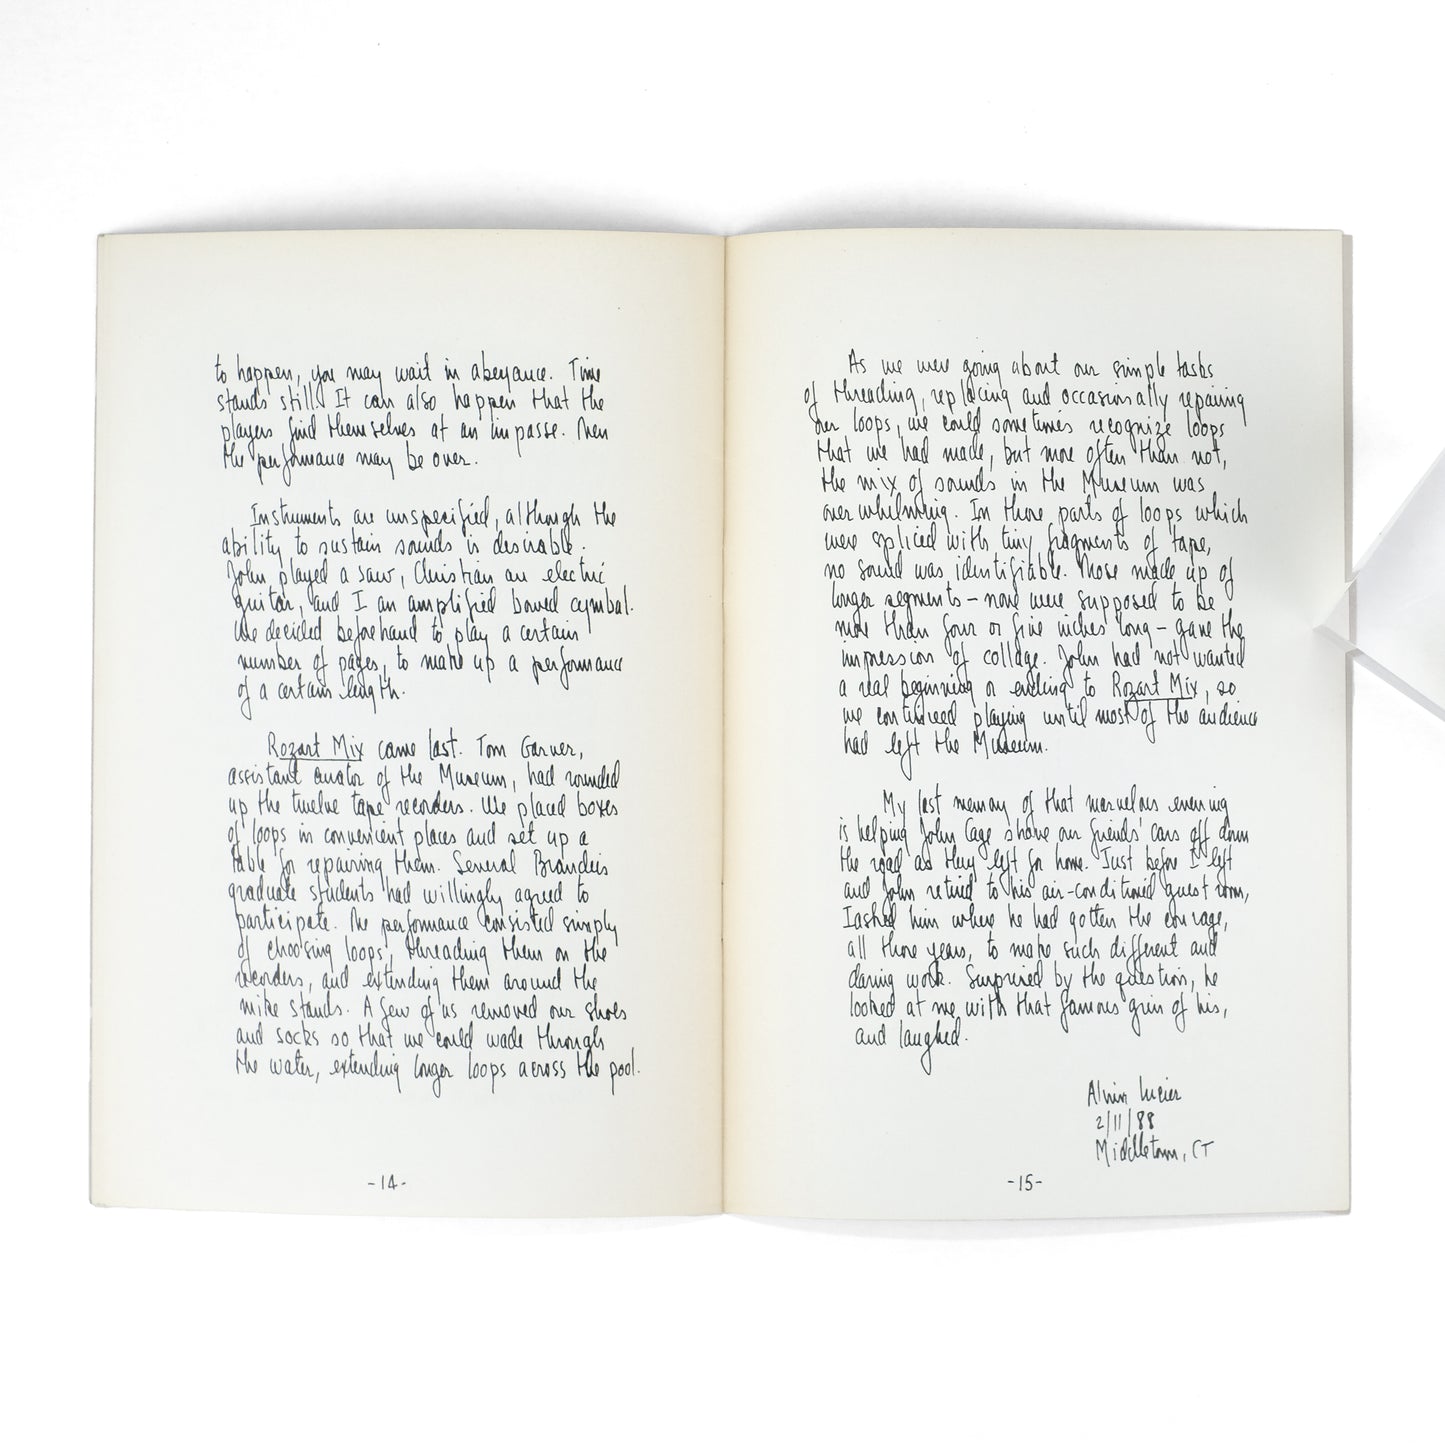 to happen, you may wait in abeyance. Time
stands still. It can also happen that the
players find themselves at an impasse. Then
the performance may be over.
Instruments are unspecified, although the
ability to sustain sounds is desirable.
John played a saw, Christian an electric
guitar, and I an amplified bowed cymbal.
We decided beforehand to play a certain
number of pages, to make up a performance
of a certain length.
Rozart Mix came last. Tom Garver,
assistant curator of the Museum, had rounded
up the twelve tape recorders. We placed boxes
of loops in convenient places and set up a
table for repairing them. Several Brandeis
graduate students had willingly agreed to
participate. The performance consisted simply
of choosing loops, threading them on the
recorders, and extending them around the
mike stands. A few of us removed our shoes
and socks so that we could wade through
the water, extending longer loops across the pool.
-14-
As we were going about our simple tasks
of threading, replacing and occasionally repairing
our loops, we could sometimes recognize loops
that we had made, but more often than not,
the mix of sounds in the Museum was
overwhelming. In those parts of loops which
were spliced with tiny fragments of tape,
no sound was identifiable. Those made up of
longer segments - none were supposed to be
more than four or five inches long - gave the
impression of collage. John had not wanted
a real beginning or ending to Rozart Mix, so
we continued playing until most of the audience
had left the Museum.
My last memory of that marvelous evening
is helping John Cage shove our friends' cars off down
the road as they left for home. Just before I left
and John retired to his air-conditioned guest room,
I asked him where he had gotten the courage,
all those years, to make such different and
daring work. Surprised by the question, he
looked at me with that famous grin of his,
and laughed.
Alvin Lucier
2/11/88
Middletown, CT
-15-